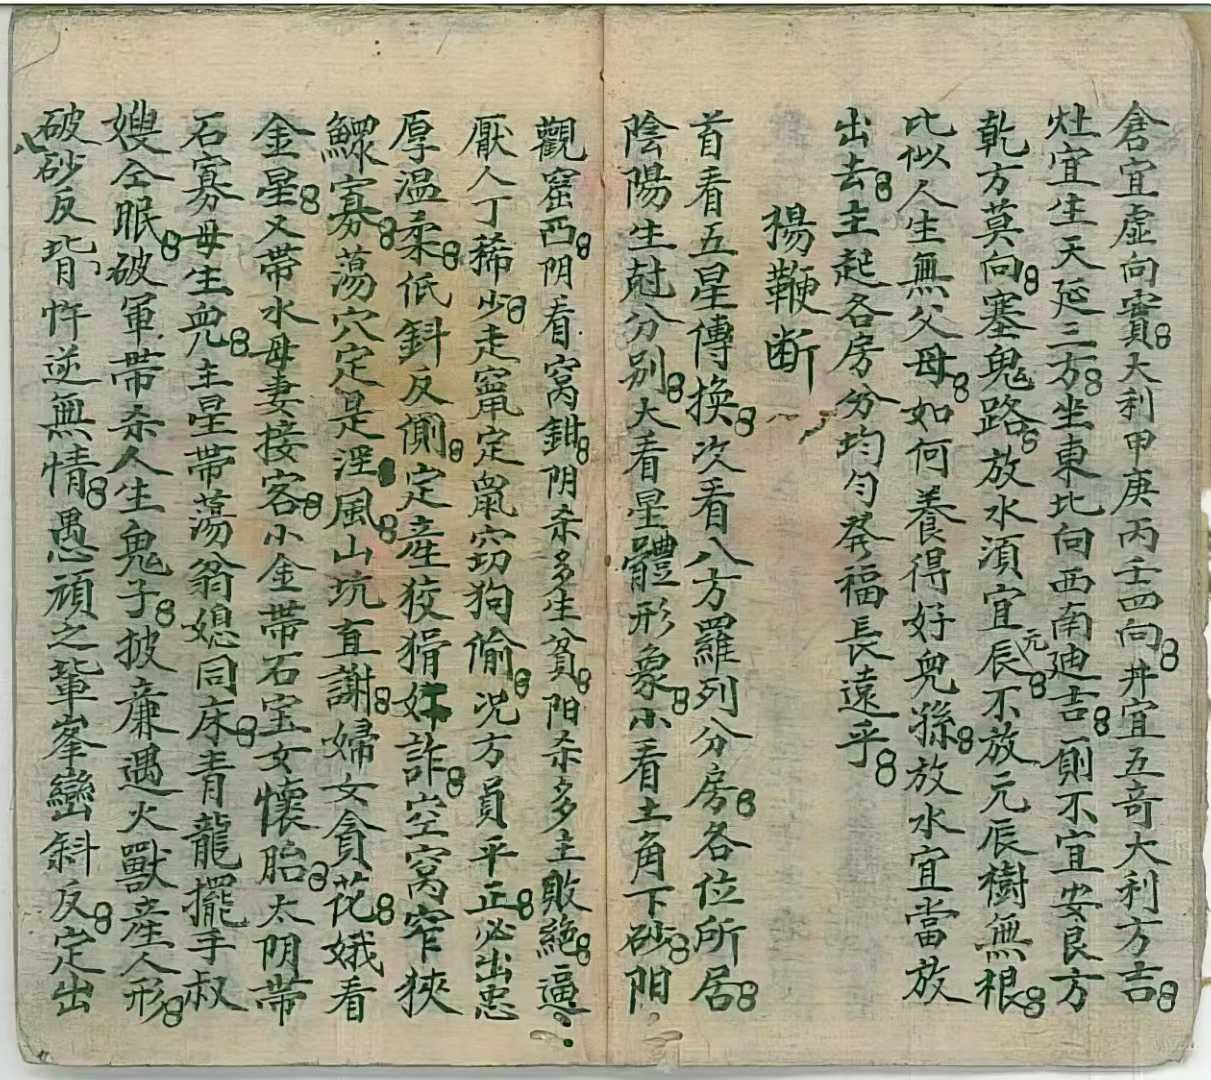 倉宜虛向實大利甲庚丙壬四向井宜五奇大利方吉
灶宜生天延三方坐東北向西南迪吉厠不宜安艮方
乾方莫向塞鬼路放水須宜元辰不放元辰樹無根
比似人生無父母如何養得好兒孫放水宜當放
出去主起各房分均勻發福長遠乎
楊鞭断
首看五星傳換次看八方羅列分房各位所居
陰陽生尅分別大看星體形象小看土角下砂阳
觀窟西阴看窝鉗阴杀多生貧阳杀多主敗絕逼
厭人丁稀少走竄定鼠窃狗偷况方員平正必出忠
厚温柔低斜反側定産狡猾奸詐空窝窄狹
鰥寡蕩穴定是淫風山坑直謝婦女貪花娥看
金星又帶水母妻接客小金帶石宝女懷胎太阴帶
石寡母生兒主星帶蕩翁媳同床青龍擺手叔
嫂仝眠破軍帶杀人生鬼子披廉遇火獸産人形
破砂反背忤逆無情愚頑之輩峯巒斜反定出